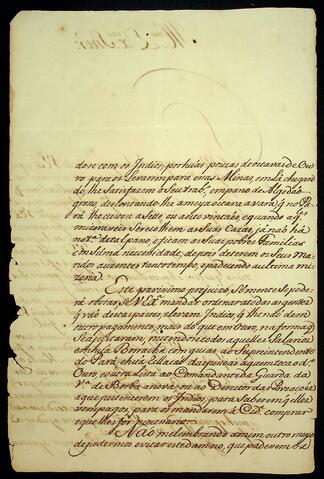 dose com os Indios, por huãs poucas de oitavas de Ou
ro para os Levarem para essas Minas, em lá chegan
do, lhe Satisfazem o Seu trabº. em pano de Algodaõ
groso, deSContando lhe a meya oitava a vara; q̃ no Pa
rá lhe custou a Sette, ou a oito vinteis, e quando a q̃.
miseraveis Serecolhem as Suas Cazas, já naõ há
notª. de tal pano, e ficam as Suas pobres Familias
em Suma necessidade, depois de terem os Seus ma
ridos auzentes tanto tempo, e padecendo a ultima mi
zeria.
Este gravissimo prejuizo Sómente se pode
rá obviar, Se V. Exª. mandar ordenar as gentes
q̃ vaõ destas partes, e levam Indios, q̃ lhe naõ dem
outro pagamento, mais do que em Ouro, na forma q̃
Se ajustaram, metendo todos aquelles Salarios
em huã Borracha com guias do Superintendente
do
Ouro, e outra Carta ao Comandante da Guarda da
Vª. de Borba a nova, ou ao Director da Povoaçaõ
a que pertencerem os Indios, para Saberem q̃ elles
vem pagos, para os mandarem á Cidᵉ. comprar
o que lhes for necessario.
Naõ me lembrando a mim outro meyo
de podermos evitar este damno, que padecem os